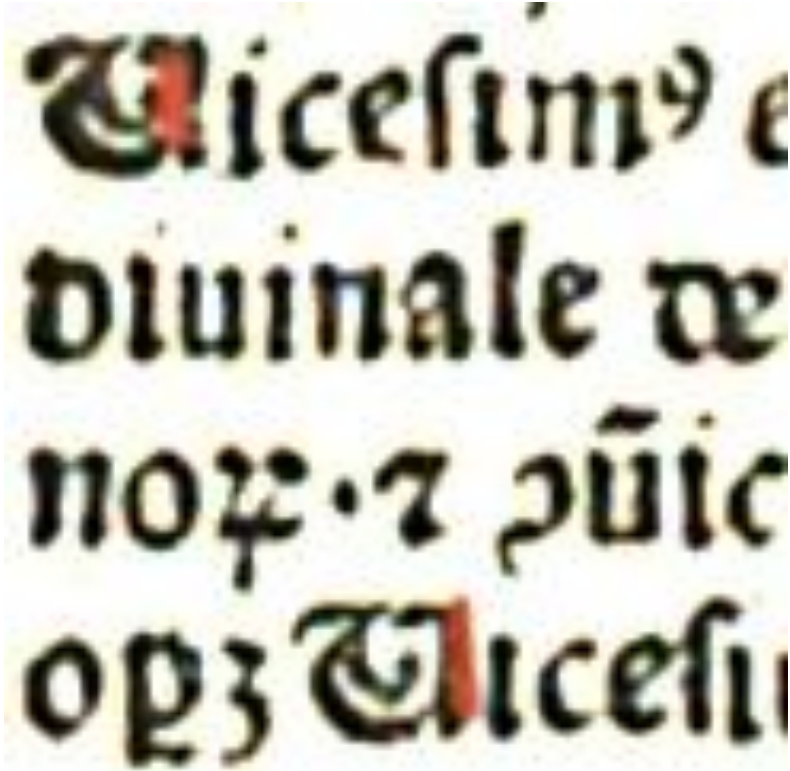 Uiceſimꝰ e
diuinale de
noꝝ·⁊ ꝯũic
oꝑꝫ Uiceſi